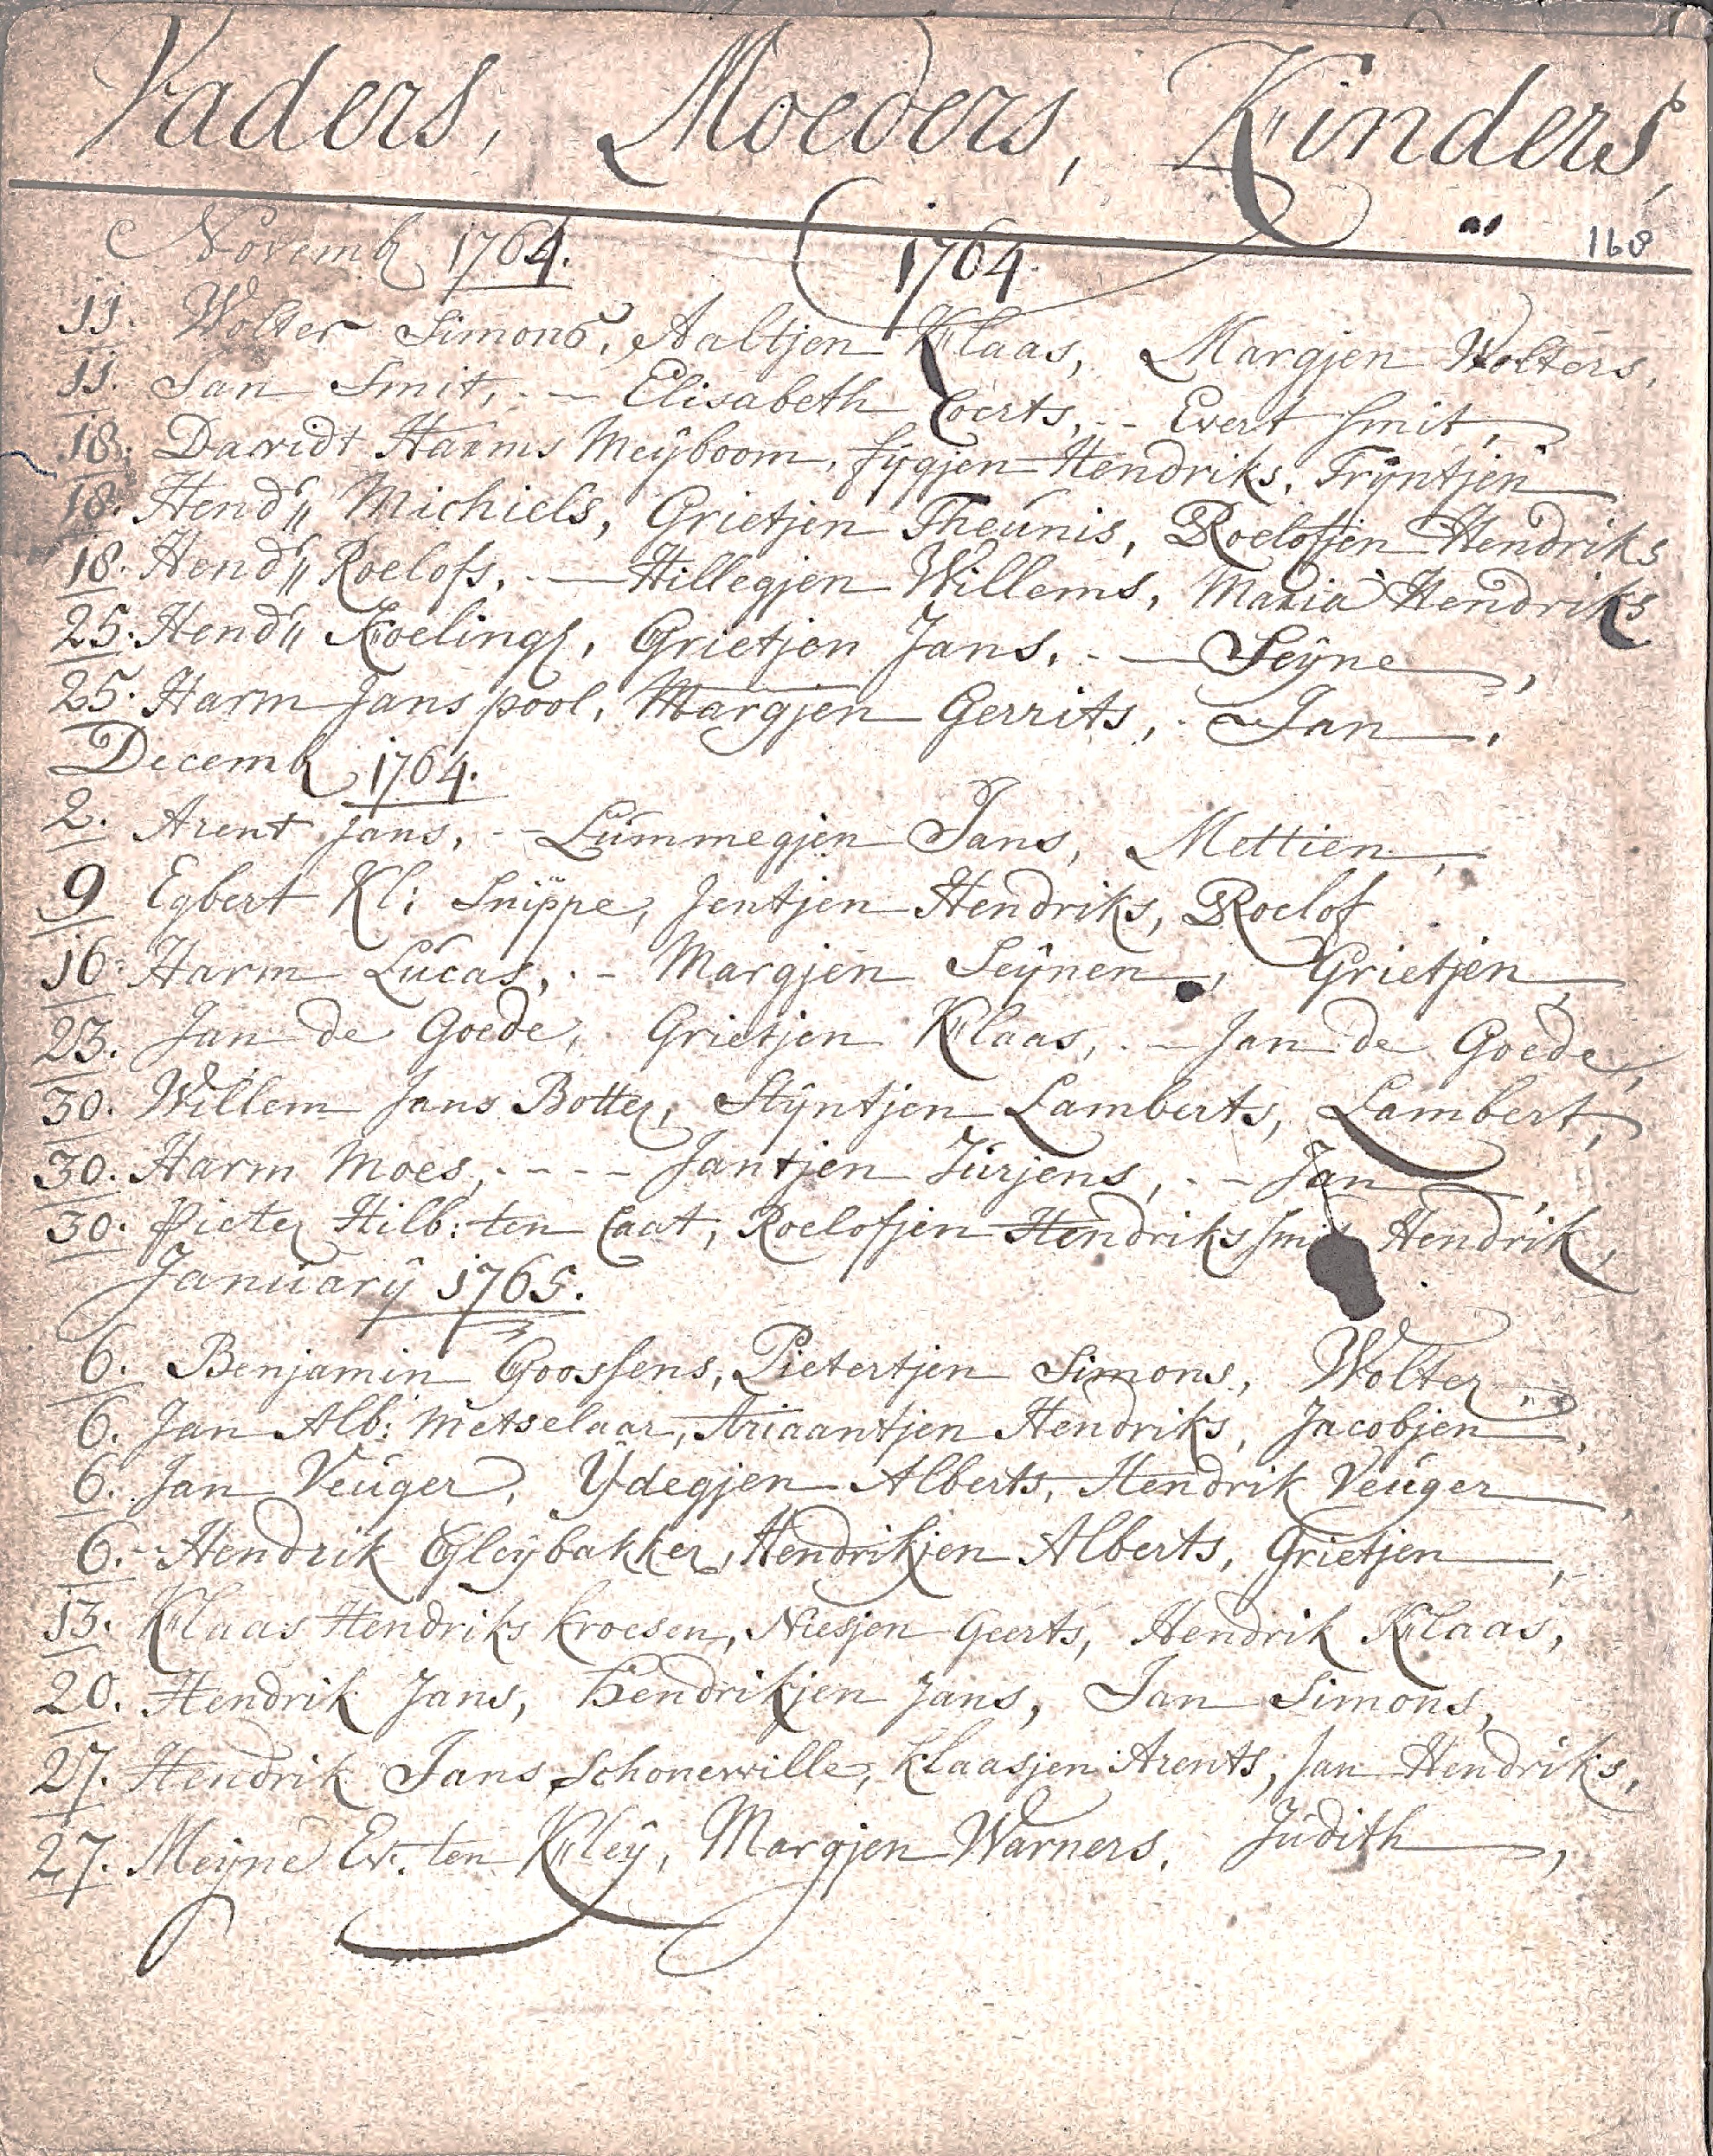 Vaders, Moeders, Kinders,
168
Novemb 1764. 1764.
11. Wolter Simons, Aaltjen Klaas, Margjen Wolters,
11. Jan Smit, - — Elisabeth Coerts, - - Evert Smit,
18. Davidt Harms Meÿboom, fÿgjen Hendriks, Trÿntjen
18. Hendr„ Michiels, Grietjen Theunis, Roelofjen Hendriks
18. Hendr„ Roelofs, - — Hillegjen Willems, Maria Hendriks
25. Hendr„ Koeling, Grietjen Jans, - — Seÿne,
25. Harm Jans pool, Margjen Gerrits, - Jan,
Decemb 1764.
2. Arent Jans, - - Lummegjen Jans, Mettien,
9 Egbert Kl: Snippe, Jentjen Hendriks, Roelof
16. Harm Lucas, - - Margjen Seÿnen, Grietjen,
23. Jan de Goede, Grietjen Klaas, - — Jan de Goede,
30. Willem Jans Botter, Stÿntjen Lamberts, Lambert,
30. Harm Moes, - - - - Jantjen Jurjens, - - Jan,
30. Pieter Hilb: ten Caat, Roelofjen Hendriks Smit Hendrik,
Januarÿ 1765.
6. Benjamin Goossens, Pietertjen Simons, Wolter,
6. Jan Alb: Metselaar, Ariaantjen Hendriks, Jacobjen,
6. Jan Veuger, Ydegjen Alberts, Hendrik Veuger,
6. - Hendrik Gleÿbakker, Hendrikjen Alberts, Grietjen,
13. Klaas Hendriks kroesen, Niesjen Geerts, Hendrik Klaas,
20. Hendrik Jans, Hendrikjen Jans, Jan Simons,
27. Hendrik Jans Schonewille, Klaasjen Arents, Jan Hendriks,
27. Meÿne Ev. ten Kleÿ, Margjen Warners, Judith,